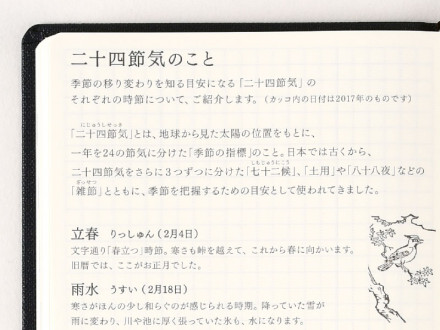 二十四節気のこと
季節の移り変わりを知る目安になる「二十四節気」の
それぞれの時節について、ご紹介します。(カッコ内の日付は2017年のものです)
にじゅうしせっき
「二十四節気」とは、地球から見た太陽の位置をもとに、
一年を24の節気に分けた「季節の指標」のこと。日本では古くから、
しちじゅうにこう
二十四節気をさらに3つずつに分けた「七十二候」、「土用」や「八十八夜」などの
ざっせつ
「雑節」とともに、季節を把握するための目安として使われてきました。
立春 りっしゅん(2月4日)
文字通り「春立つ」時節。寒さも峠を越えて、これから春に向かいます。
旧暦では、ここがお正月でした。
雨水 うすい(2月18日)
寒さがほんの少し和らぐのが感じられる時期。降っていた雪が
雨に変わり、川や池に厚く張っていた氷も、水になります。